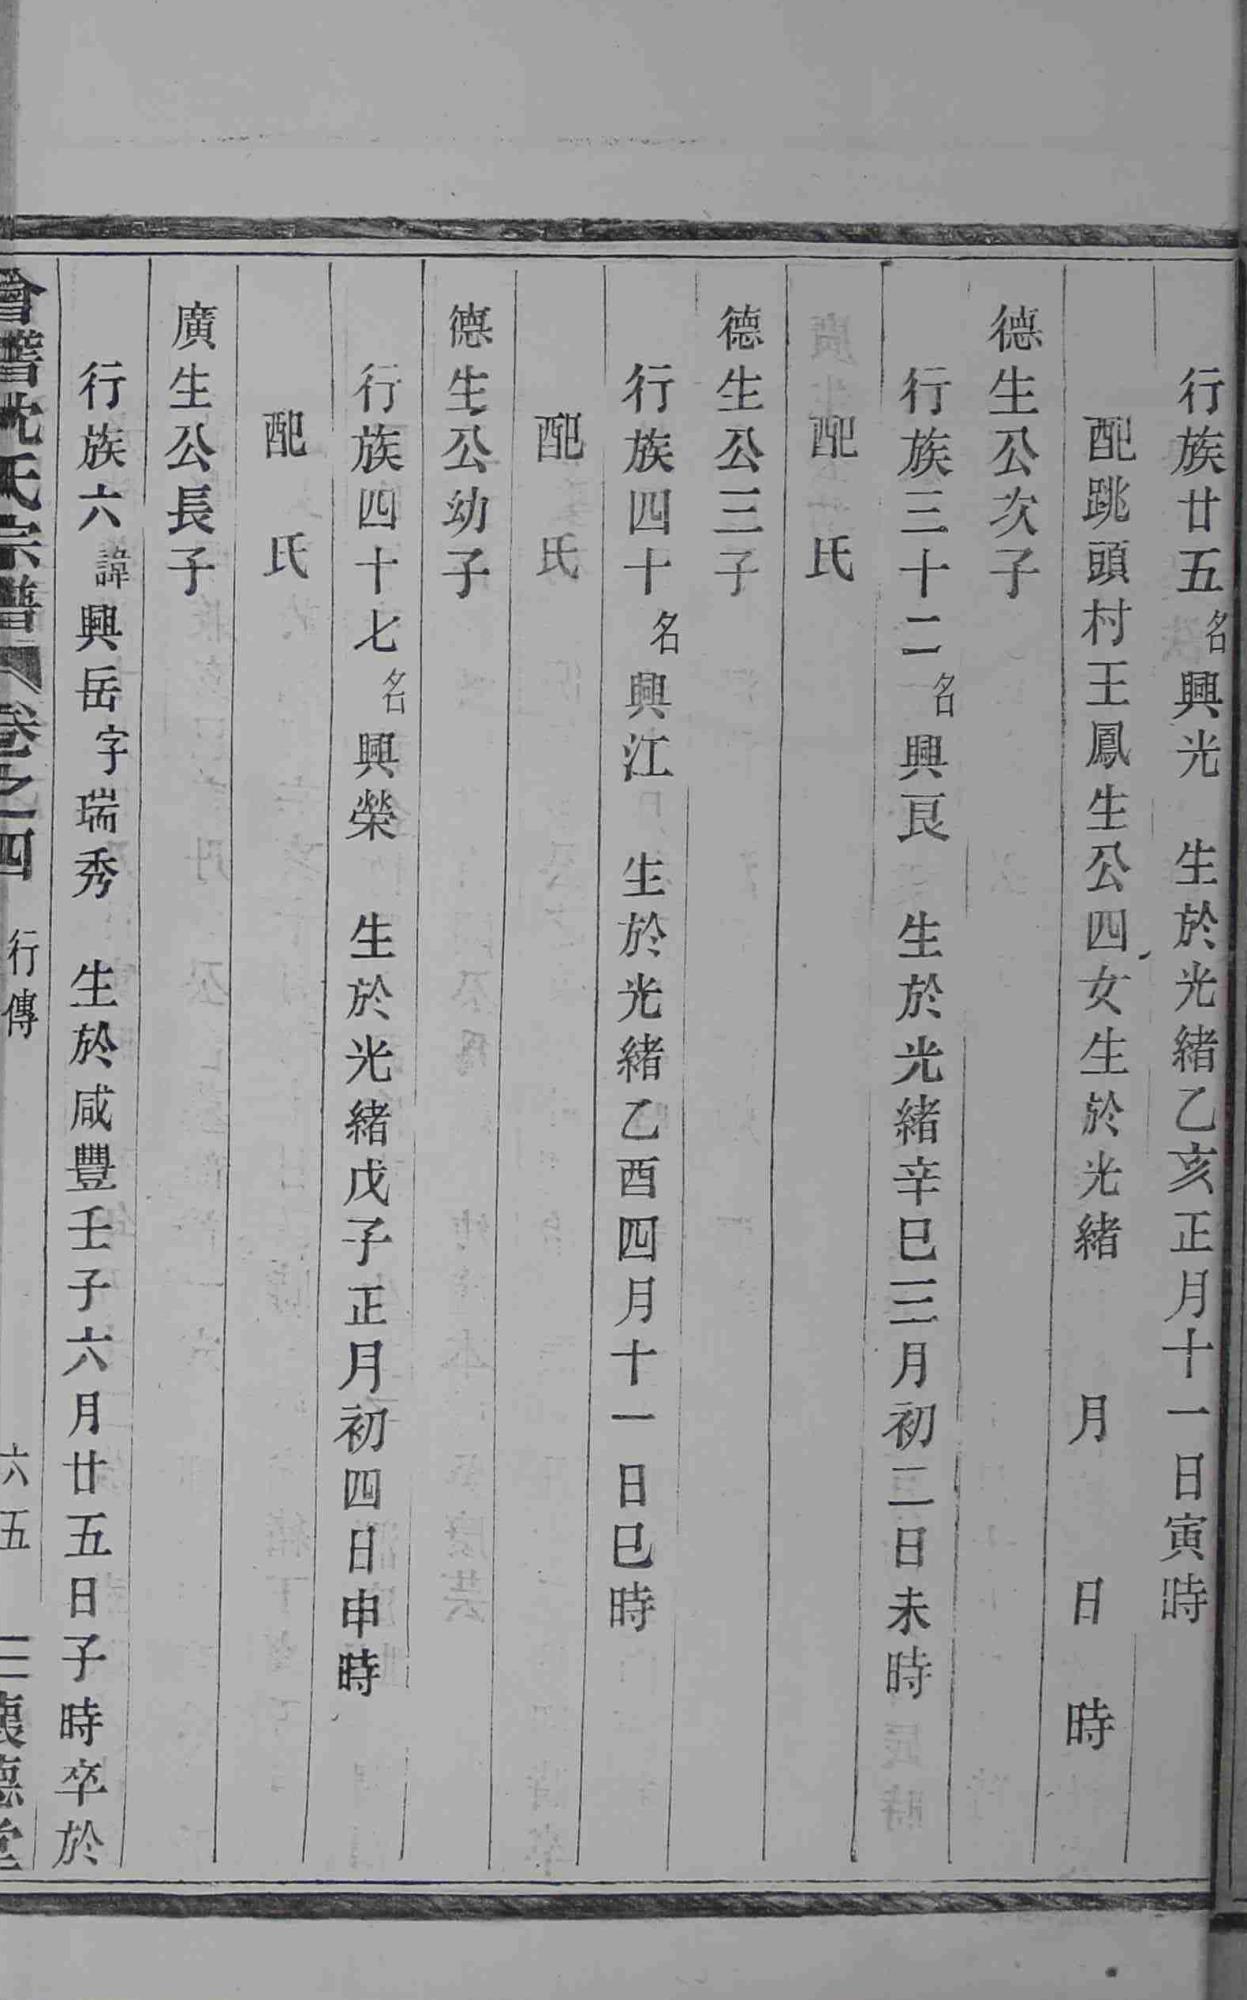 行族廿五名興光　生於光緒乙亥正月十一日寅時
配跳頭村王鳳生公四女生於光緒　月　日　時
德生公次子
行族三十二名興良　生於光緒辛巳三月初二日未時
配　氏
德生公三子
行族四十名興江　生於光緒乙酉四月十一日巳時
配　氏
德生公幼子
行族四十七名興榮　生於光緒戊子正月初四日申時
配　氏
廣生公長子
行族六諱興岳字瑞秀　生於咸豐壬子六月廿五日子時卒於
會稽沈氏宗譜　卷之四　行傳　六五　三懷德堂